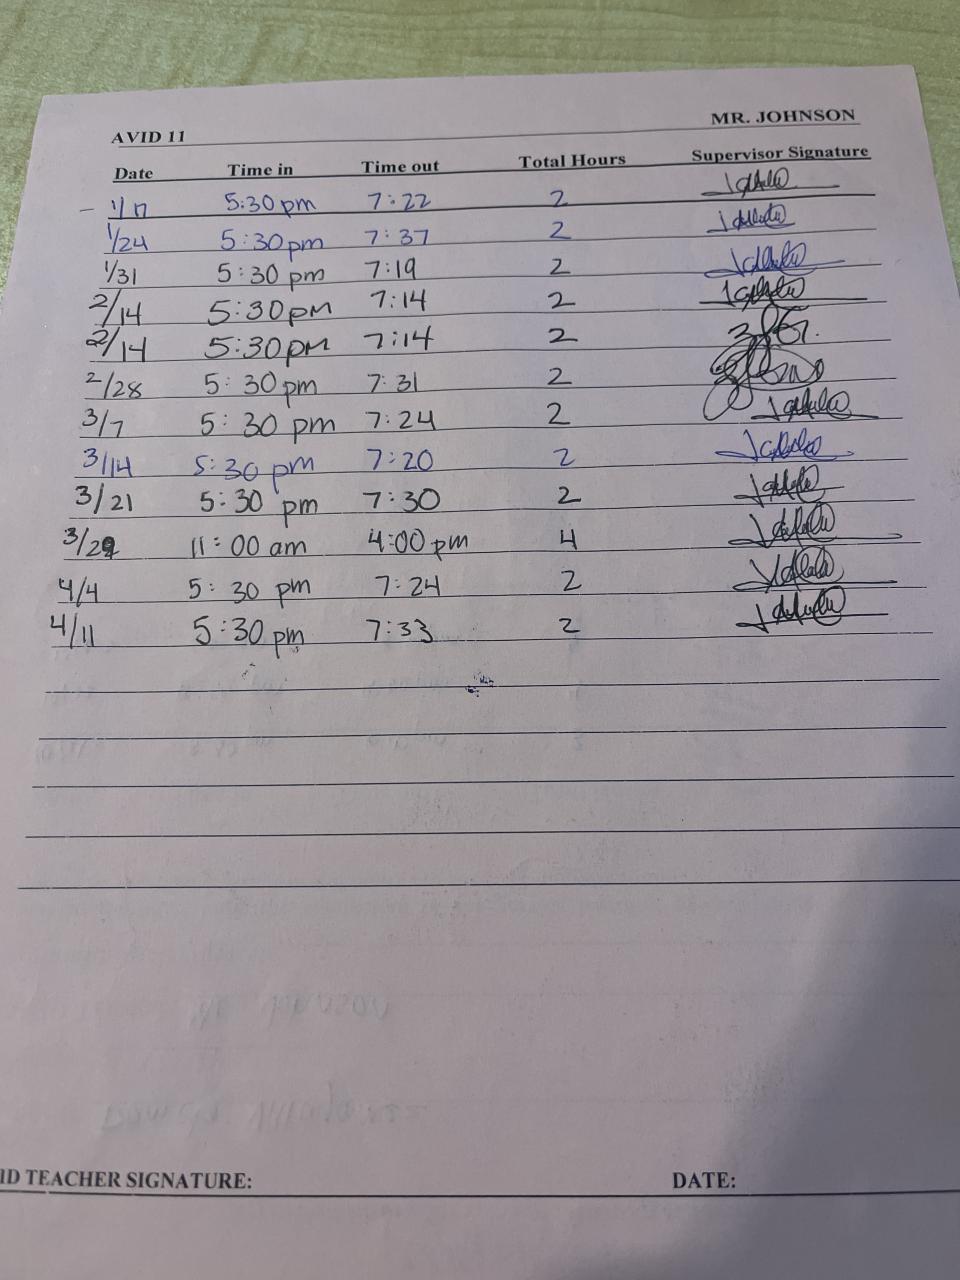 AVID 11 MR. JOHNSON
Date Time in Time out Total Hours Supervisor Signature
1/17 5:30 pm 7:22 2
1/24 5:30 pm 7:37 2
1/31 5:30 pm 7:19 2
2/14 5:30 pm 7:14 2
2/14 5:30 pm 7:14 2
2/28 5:30 pm 7:31 2
3/7 5:30 pm 7:24 2
3/14 5:30 pm 7:20 2
3/21 5:30 pm 7:30 2
3/29 11:00 am 4:00 pm 4
4/4 5:30 pm 7:24 2
4/11 5:30 pm 7:33 2
ID TEACHER SIGNATURE: DATE: